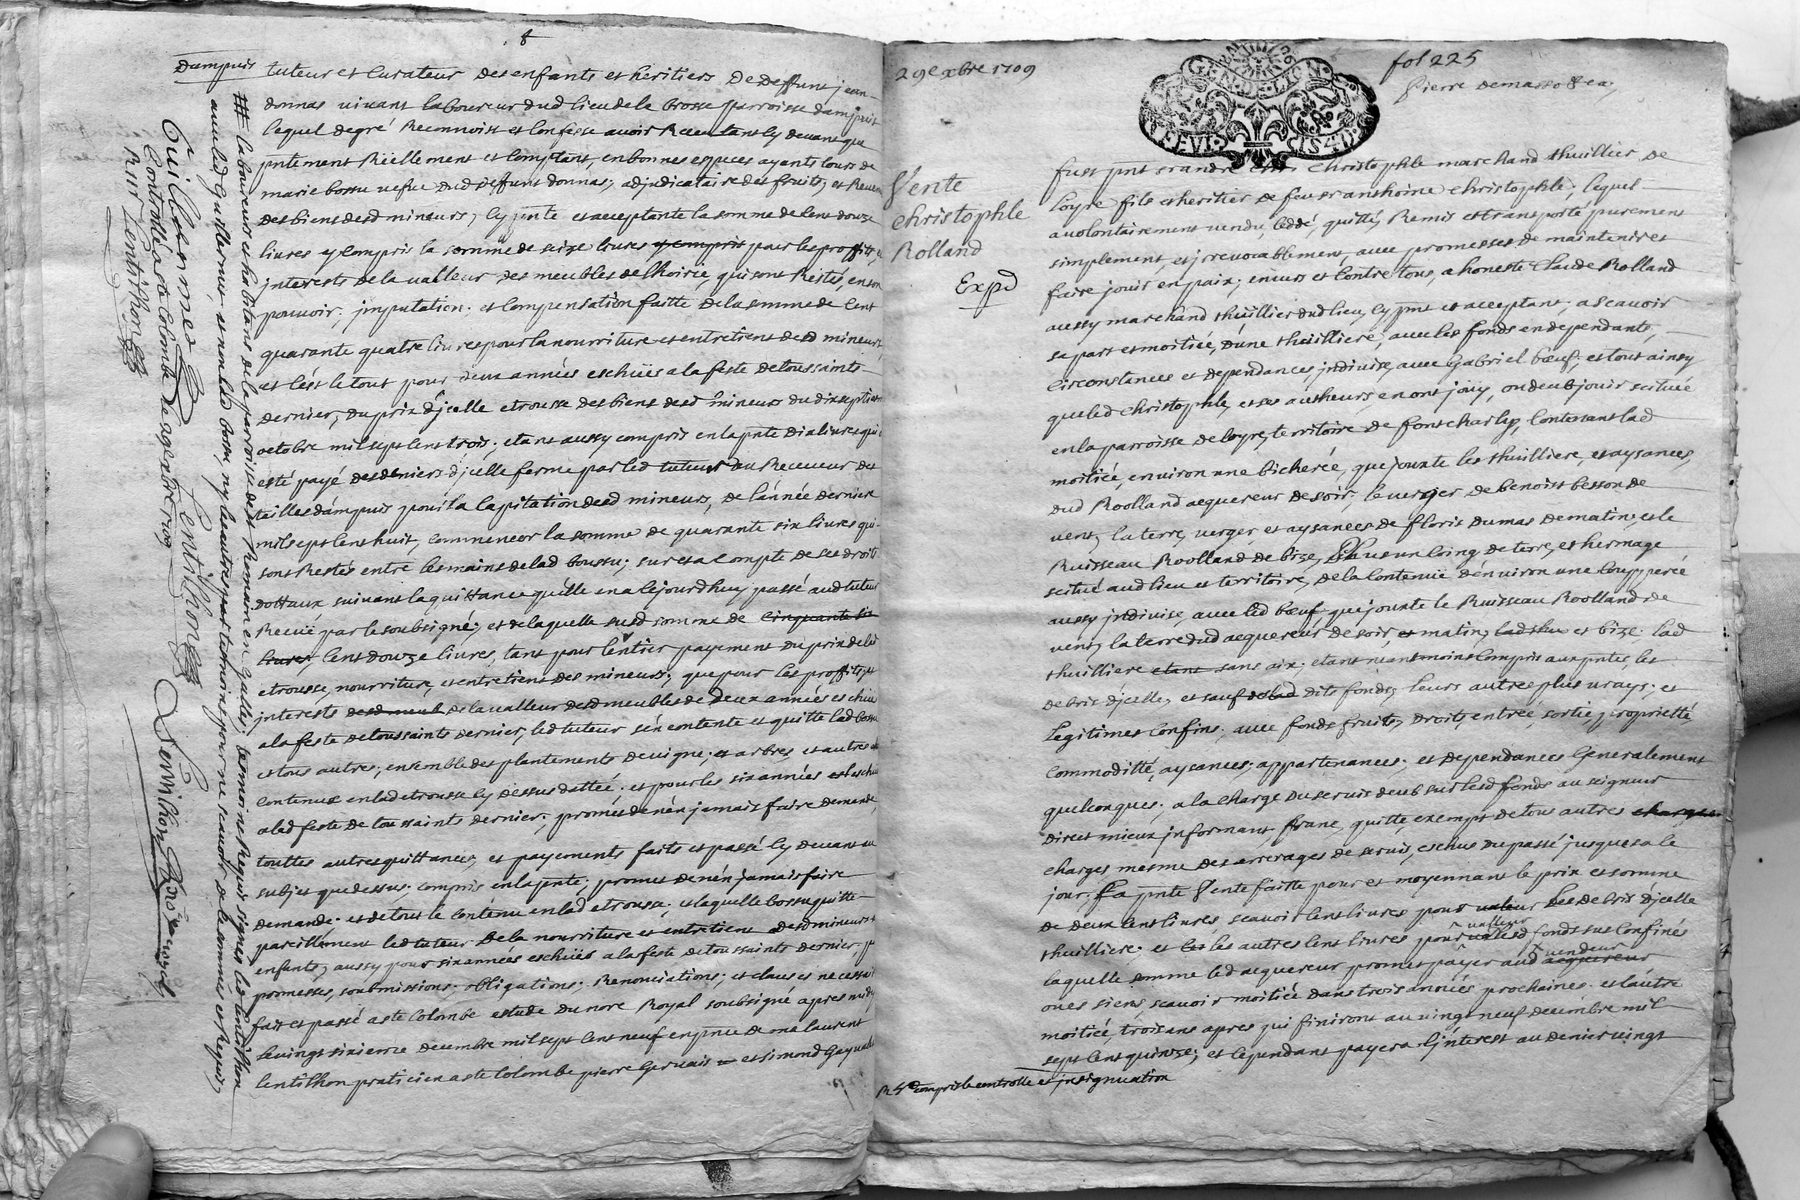 8
Dampuis
tuteur et Curateur des enfants et heritiers de deffunt jean
donnas vivant laboureur dud lieu de la brosse parroisse dampuis
lequel degré Reconnoist et Confesse avoir Receu tant cy devant que
pntement Réellement et Comptant, en bonnes especes ayants cours de
marie bossu vefve dud deffunt donnas; adjudicataire des fruits, et Reven
des biens desd mineurs, cy pnte et acceptante la somme de Cent douze
livres y Compris la somme de seize livres y compris pour les proffits,
jnterests de la valleur des meubles de lhoirie, qui sont Restés, en son
pouvoir, jmputation, et Compensation faitte de la somme de Cent
quarante quatre livres pour la nourriture et entretiens desd mineurs,
et c'est le tout pour deux années eschües a la feste de toussaints
dernier, du prix d'jcelle etrousse des biens desd mineurs du dix septieme
octobre mil sept Cent trois; etant aussy compris en la pnte dix livres qui
esté payé des deniers d'jcelle ferme par led tuteur au Receveur des
tailles d'ampuis pour la Capitation desd mineurs, de lannée derniere
mil sept Cent huit, commencer la somme de quarante six livres qui
sont Restés entre les mains de lad bossu; sur et a Compte de ses droits
dottaux suivant la quittance quelle en a cejourdhuy passé aud tuteur
Receüe par le soubsigné; et de laquelle susd somme de Cinquante six
livres Cent douze livres, tant pour lentier payement du prix de lad
etrousse, nourriture, et entretiens des mineurs; que pour les proffits, et
jnterests desd meub de la valleur desd meubles de deux années eschües
a la feste de toussaints dernier, led tuteur s'en contente et quitte lad bossu
et tous autres, ensemble des plantements de vigne, et arbres, et autres
Contenus en lad etrousse cy dessus dattée; et pour les six années eschües
a lad feste de toussaints dernier; promet de n'en jamais faire demande
touttes autres quittances, et payements faits et passé cy devant au
subjet que dessus compris en la pnte; promet de n'en jamais faire
demande; et de tout le contenu en lad etrousse; et laquelle bossu quitte
pareillement led tuteur de la nourriture et entretiens desd mineurs et
enfants, aussy pour six années eschües a la feste de toussaints dernier, p
promesses, soubmissions, obligations, Renonciations; et clauses necessai
fait et passé a ste Colombe estude du nore Royal soubsigné apres midy
le vingt sixieme decembre mil sept Cent neuf en pnce de me laurent
lentilhon praticien a ste Colombe pierre Gervais et simond Gaynal
laboureurs et habitans de la parroisse de st Romain en Galles; tesmoins Requis signés led lentilhon
avec led Guillermes, et non lad bossu, ny les autres tesmoins pour ne scavoir de ce sommés et Requis,
Guillermes
Lentilhon
Lentilhon Nore Royal
Controllé a ste Colombe le
Lentilhon
29e xbre 1709
GEN. DE. LYON
fol 225
Pierre demasso &ca,
Vente
Christophle
Rolland
Expd
fust pnt sr andré Christophle marchand thuillier de
loyre fils et heritier de feu sr anthoine Christophle; lequel
a volontairement vendu, Ceddé, quitté, Remis et transporté purement
simplement, et jrrevocablement, avec promesses de maintenir et
faire jouir en paix; envers et Contre tous, a honeste Claude Rolland
aussy marchand thuillier dud lieu, cy pnt et acceptant; a scavoir
sa part et moitiée, d'une thuilliere, avec les fonds en dependants,
Circonstances et dependances jndivise, avec Gabriel bœuf; et tout ainsy
que led Christophle, et ses autheurs, en ont jouy, ou deub jouir scitüée
en la parroisse de loyre, territoire de fontcharly, Contenant lad
moitiée, environ une bicherée, que jouxte les thuilliere, et aysances,
dud Roolland acquereur de soir, le verger de benoist besson de
vent, la terre, verger, et aysances de floris dumas de matin, et le
Ruisseau Roolland de bize, Plus un Coing de terre, et hermage
scitué aud lieu et territoire, de la Contenüe d'environ une Coupperée
aussy jndivise, avec led bœuf, que jouxte le Ruisseau Roolland de
vent, la terre dud acquereur de soir, et matin, lad thui et bize. Lad
thuilliere etant sans aix, etant neantmoins Compris aux pntes, les
debris d'jcelle, et sauf desd dits fonds, leurs autres plus vrays; et
legitimes Confins; avec fonds fruits, droits, entrée, sortie, proprietté
Commoditté, aysances; appartenances; et dependances Generalement
quelconques; a la charge du servis deub sur lesd fonds au seigneur
direct mieux jnformant, franc, quitte, exempt de tous autres charges
charges mesme des arrerages de servis, eschus du passé jusques a ce
jour. La pnte Vente faitte pour et moyennant le prix et somme
de deux Cent livres, scavoir Cent livres pour valeur les debris d'jcelle
thuilliere; et les les autres Cent livres pour valleur lesd fonds sus Confinés
laquelle somme led acquereur promet payer aud acquereur vendeur
ou es siens, scavoir moitiée dans trois années prochaines. et l'autre
moitiée, trois ans apres qui finiront au vingt neuf decembre mil
sept Cent quinze; et Cependant payera l'jnterest au denier vingt
compris le controlle et jnsignuation